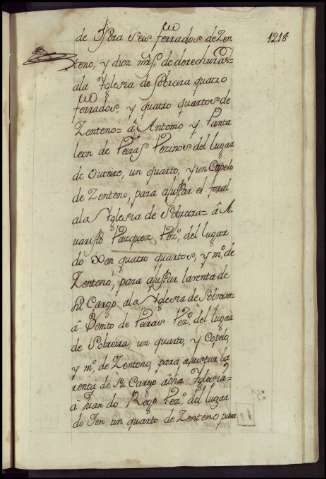 de Osera seis ferrados de Zen
1218
teno, y diez mrs. de derechuras=
ala Yglesia de Sobreira quatro
ferrados y quarto quartos de
Zenteno= â Antonio y Panta
leon de Peiras Vezinos del lugar
de Outeiro, un quarto, y un Copelo
de Zenteno, para ajustar el foral
ala Yglesia de Sobreira= â A
Vazquez Vez.º del lugar
do quatro quartos, y m.º de
Zenteno, para ajustar la renta de
su Cargo, ala Yglesia de Sobreira=
â Benito de Vez.º del lugar
de Sobreira, un quarto, y Copelo
y m.º de Zenteno, para ajustar la
renta de su Cargo adha Yglesia=
â Juan do Rego Vez.º del lugar
do un quarto de Zenteno para